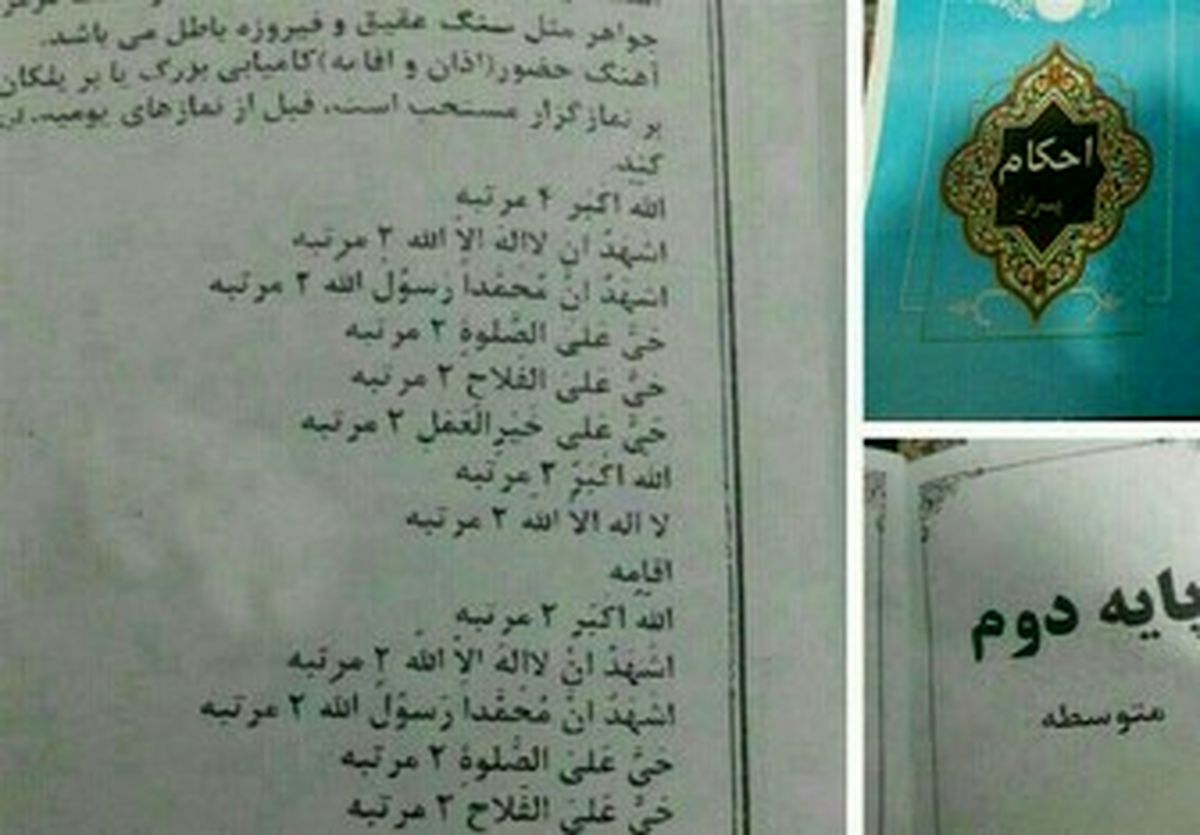 جواهر مثل سنگ عقیق و فیروزه باطل می باشد.
آهنگ حضور(اذان و اقامه)کامیابی بزرگ یا بر پلکان
بر نمازگزار مستحب است، قبل از نمازهای یومیه،
کند
الله اکبر ۴ مرتبه
اشهدُ ان لااله الاّ الله ۲ مرتبه
اشهدُ انَّ مُحمَّداً رَسوُلُ الله ۲ مرتبه
حَیَّ عَلیَ الصَّلوةِ ۲ مرتبه
حیَّ عَلیَ الفَلاحِ ۲ مرتبه
حَیَّ عَلی خَیرِالعَملِ ۲ مرتبه
الله اکبرُ ۲ مرتبه
لا اله الا الله ۲ مرتبه
اقامه
الله اکبَر ۲ مرتبه
اشَهَدُ انْ لاالهَ الاّ الله ۲ مرتبه
اشهدُ انَّ مُحَمَّداً رَسوُلُ الله ۲ مرتبه
حَیَّ عَلیَ الصَّلوةِ ۲ مرتبه
حَیَّ عَلیَ الفَلاحِ ۲ مرتبه
احکام
پسران
پایه دوم
متوسطه